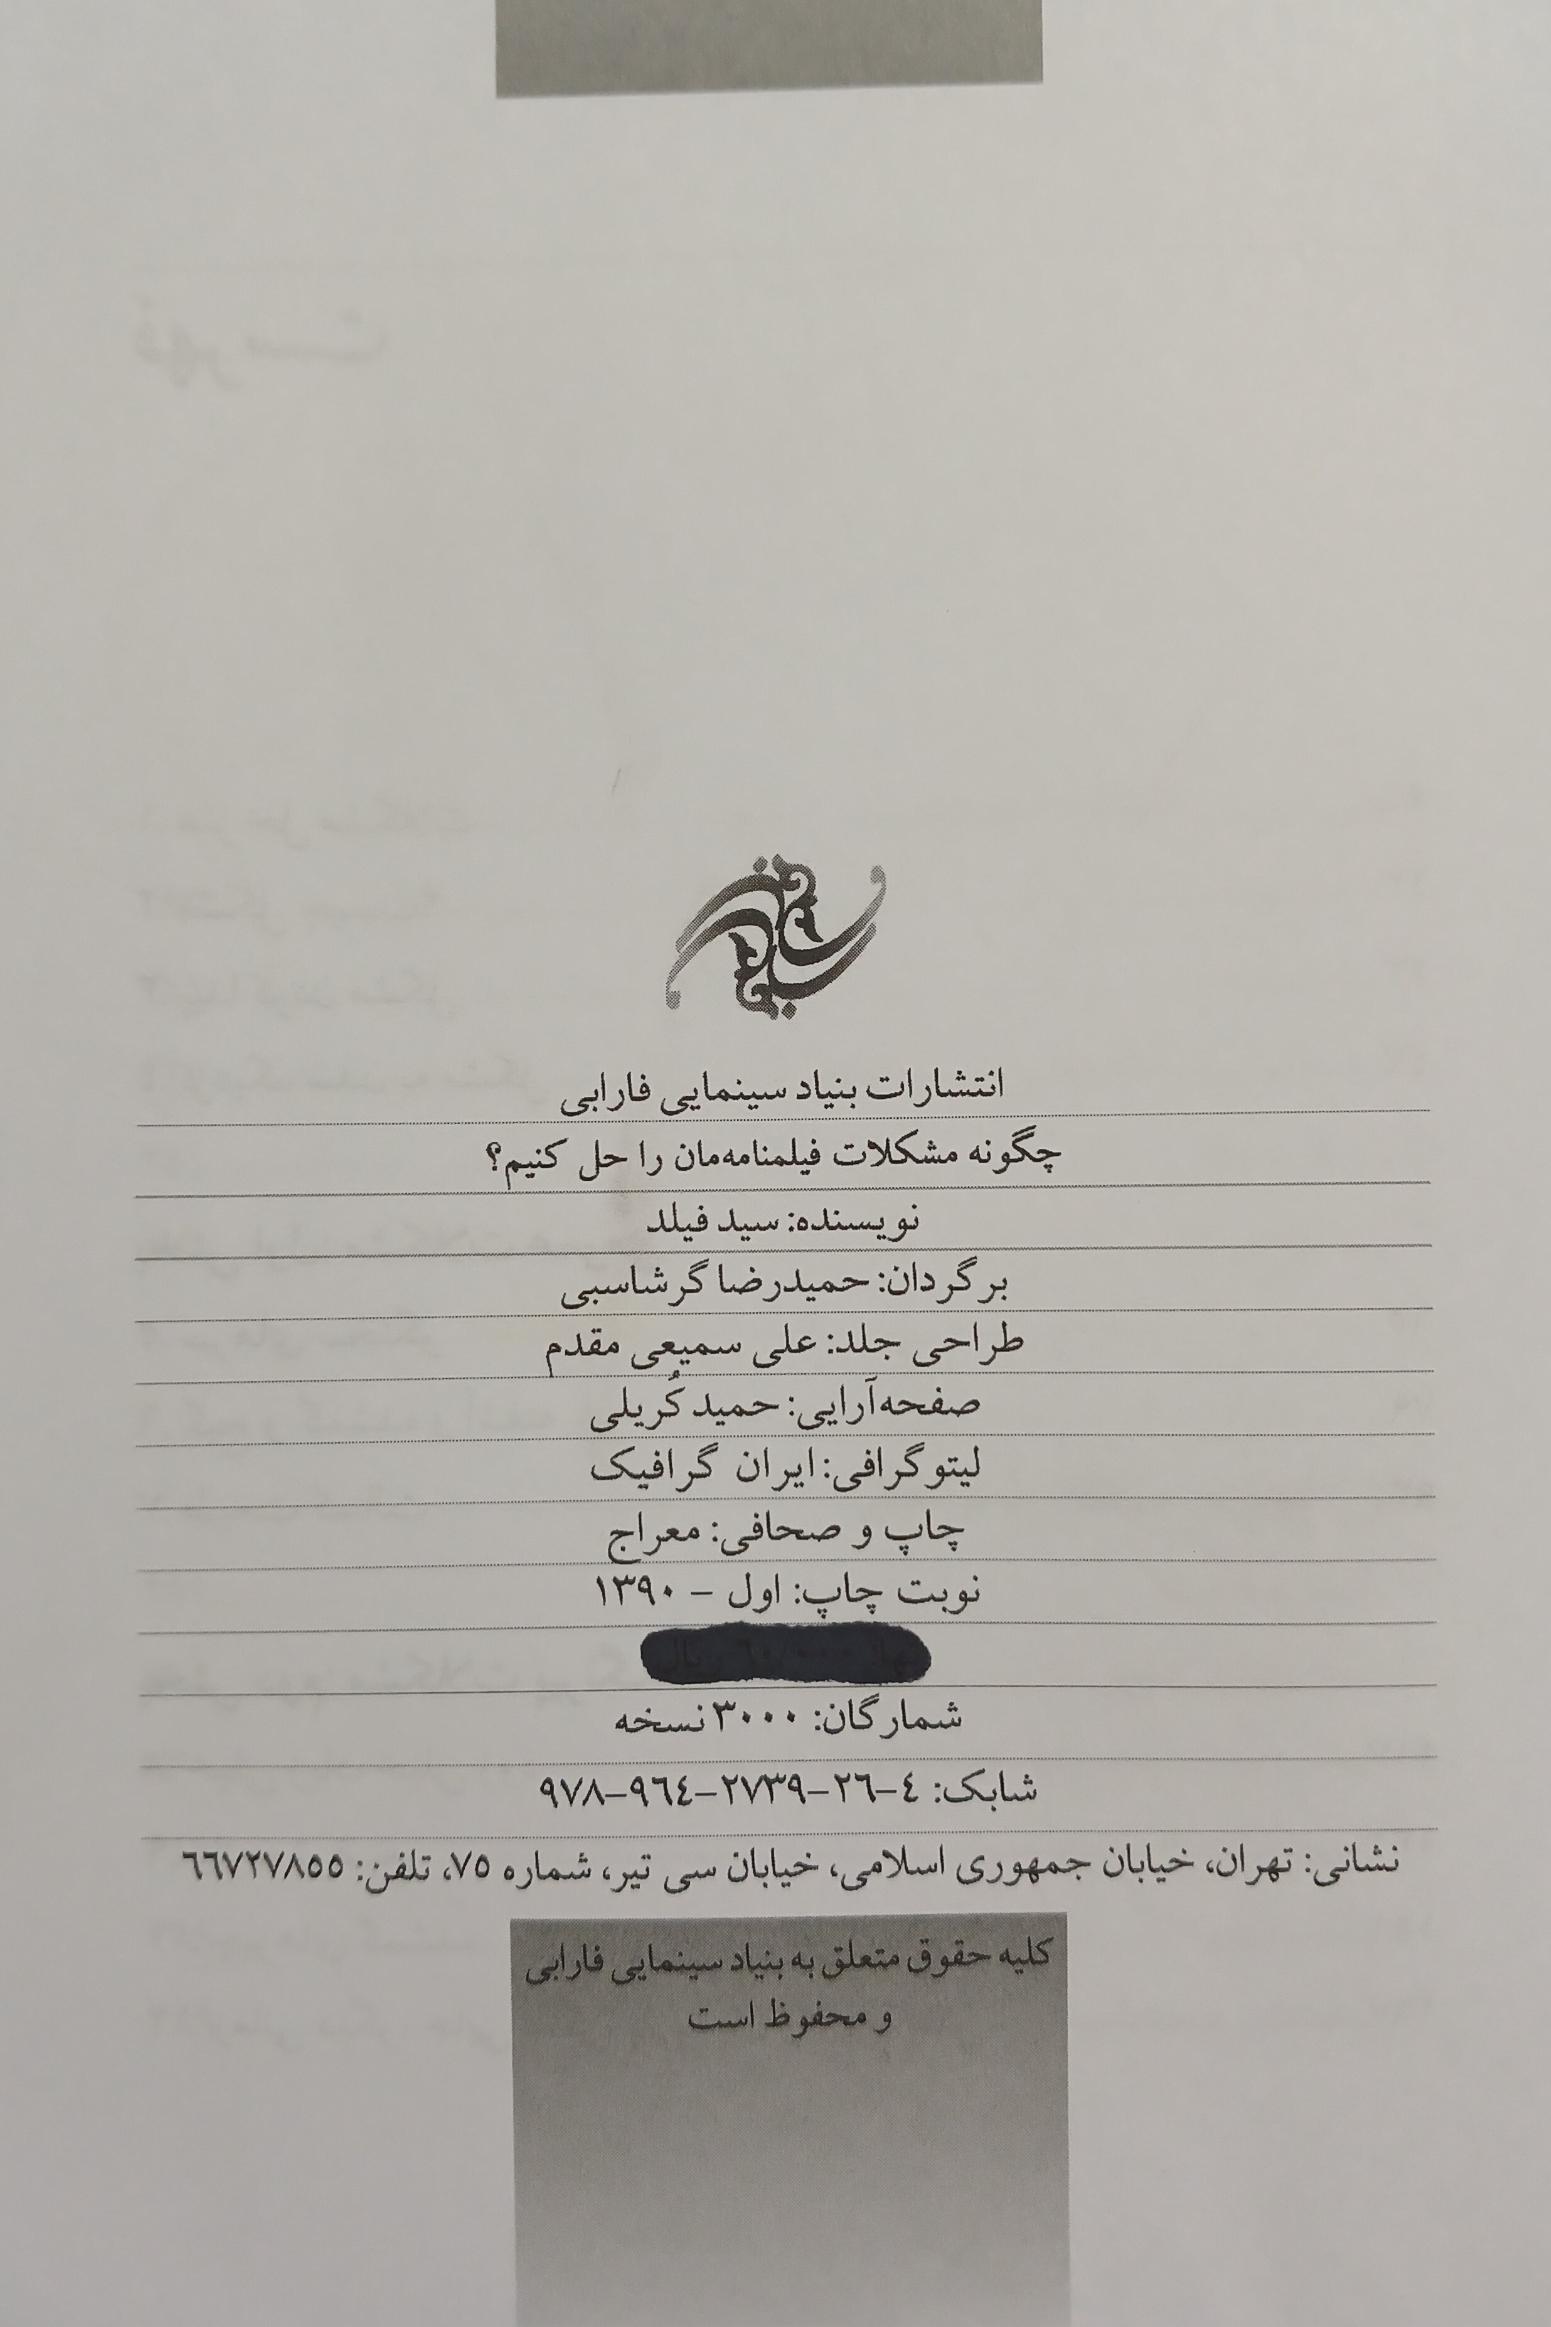 انتشارات بنیاد سینمایی فارابی
چگونه مشکلات فیلمنامه‌مان را حل کنیم؟
نویسنده: سید فیلد
برگردان: حمیدرضا گرشاسبی
طراحی جلد: علی سمیعی مقدم
صفحه‌آرایی: حمید کُریلی
لیتوگرافی: ایران گرافیک
چاپ و صحافی: معراج
نوبت چاپ: اول – ۱۳۹۰
شمارگان: ۳۰۰۰ نسخه
شابک: ٤-٢٦-٢٧٣٩-٩٦٤-٩٧٨
نشانی: تهران، خیابان جمهوری اسلامی، خیابان سی تیر، شماره ٧٥، تلفن: ٦٦٧٢٧٨٥٥
کلیه حقوق متعلق به بنیاد سینمایی فارابی
و محفوظ است